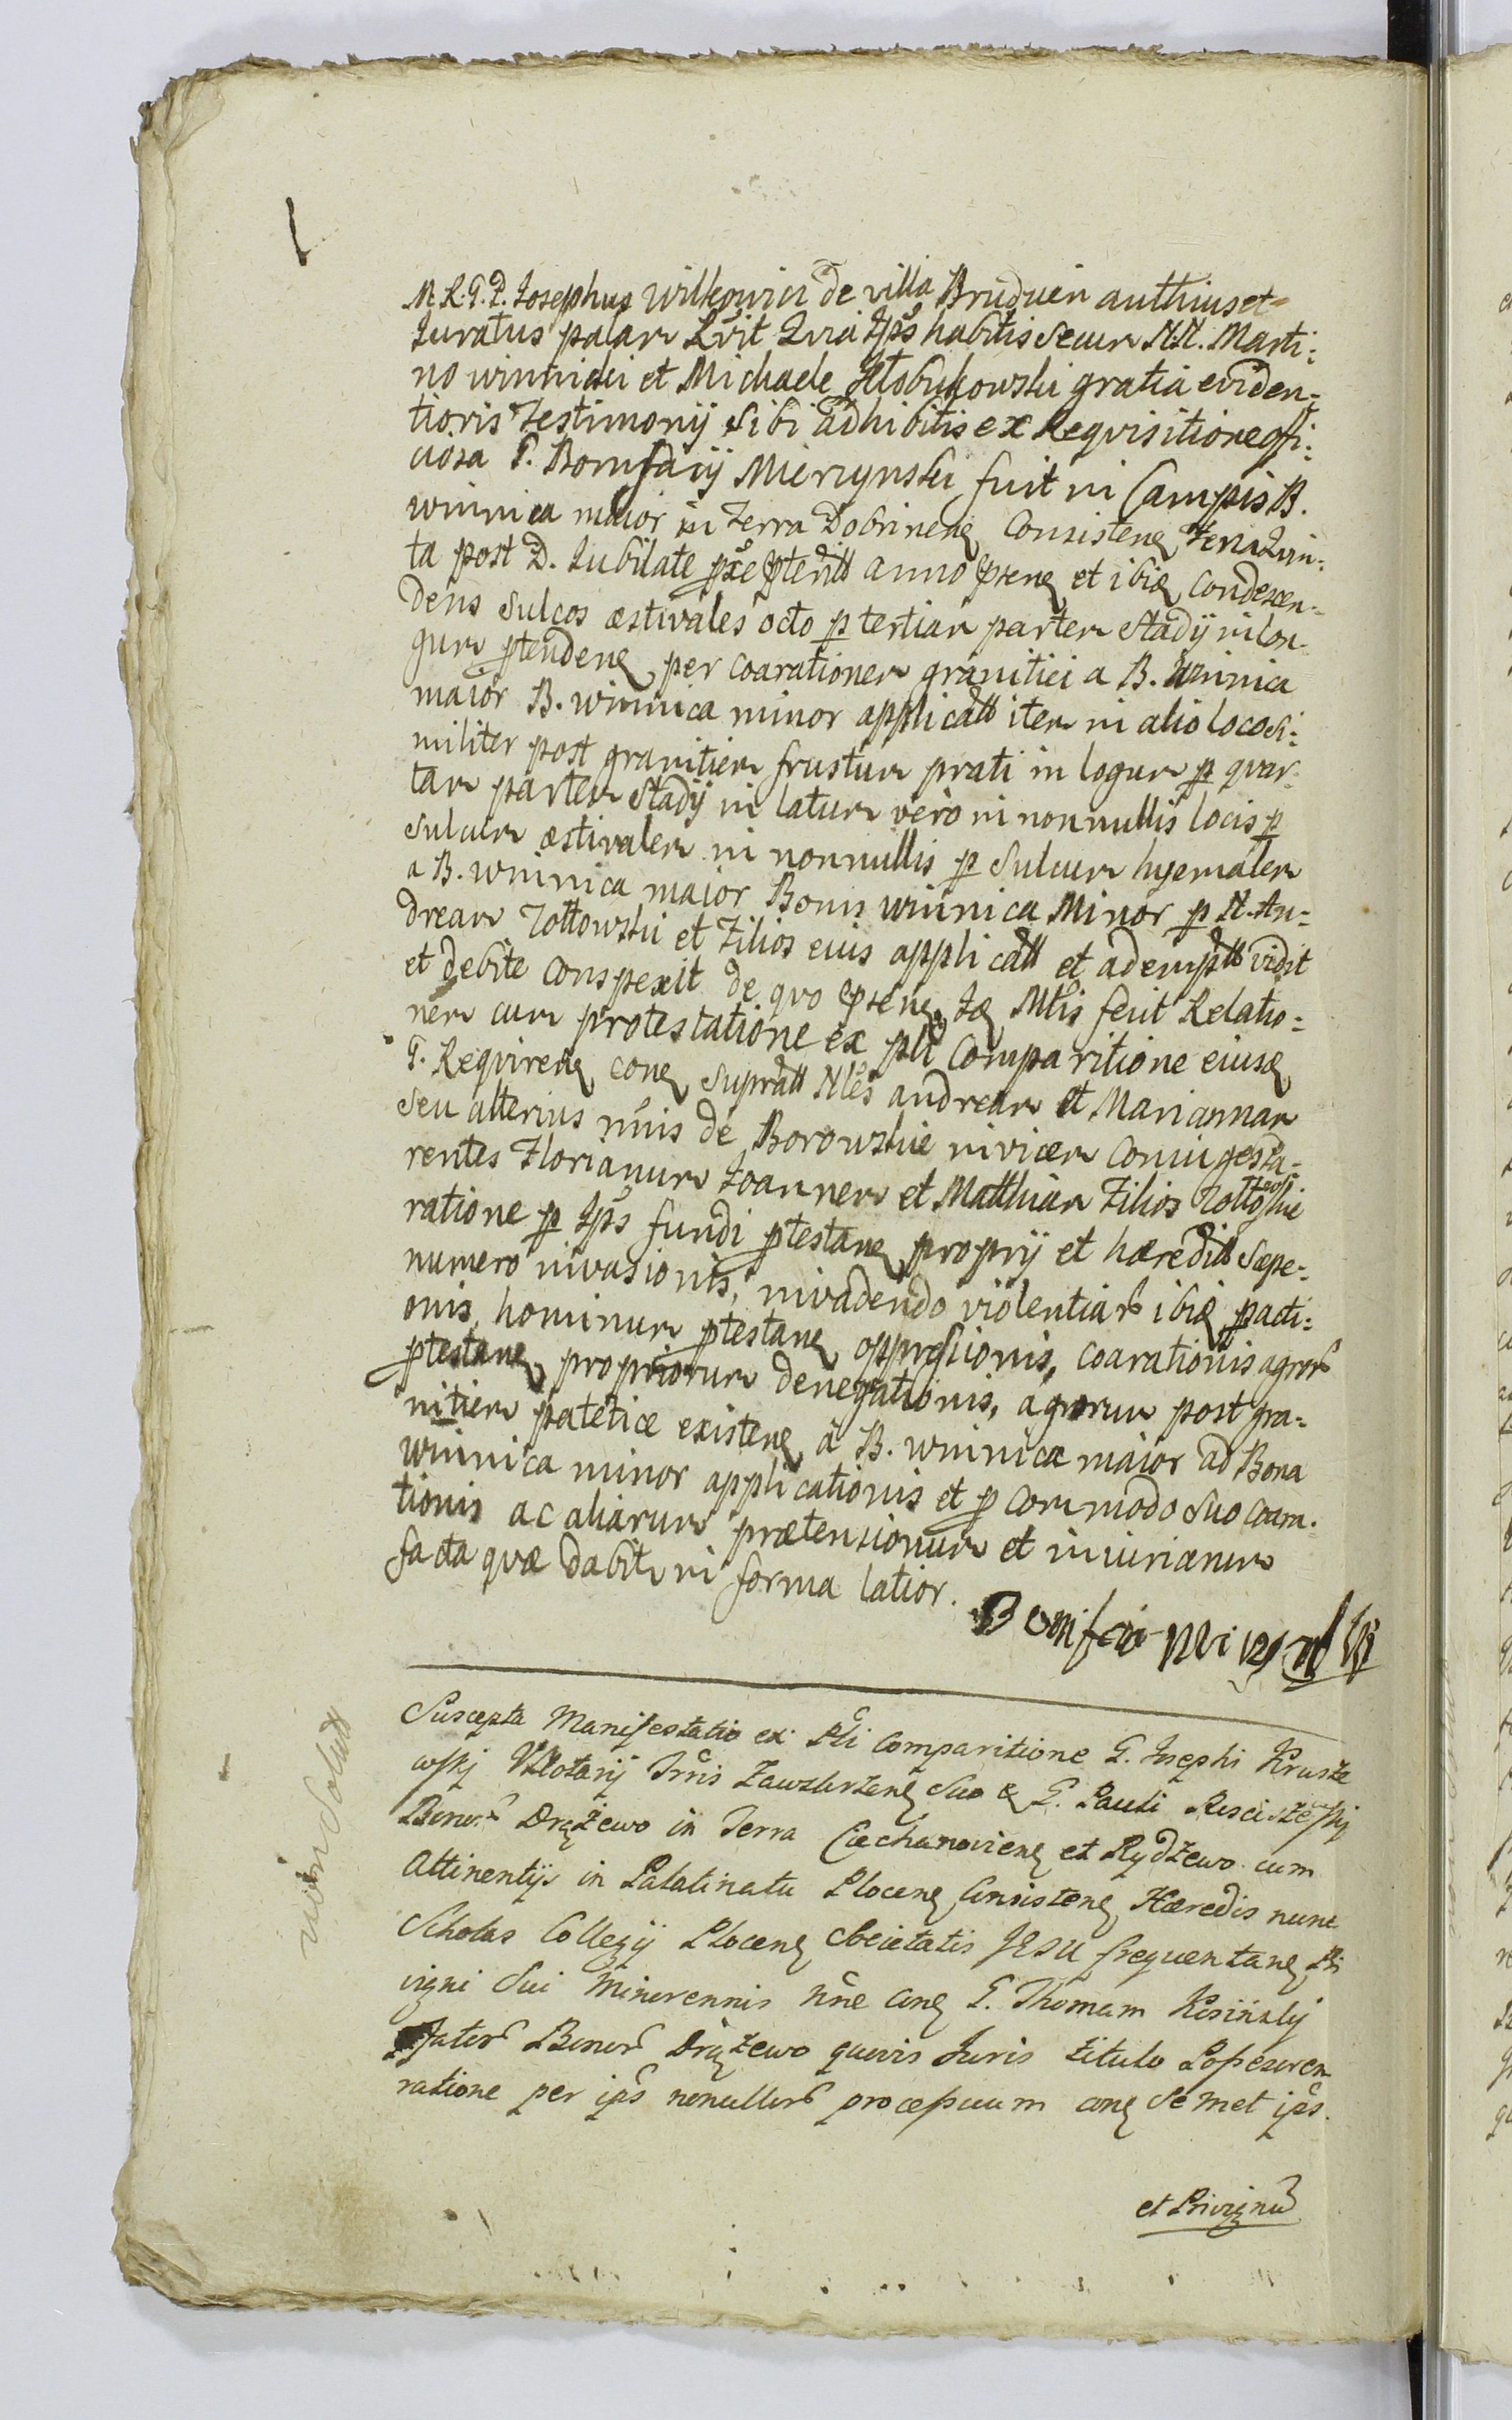 M. R. G. P. Josephus Wilkowicz de villa Bruduen authius et
Juratus palam Rvit Qvia Ips habitis Secum N.N. Marti:
no winnicki et Michaele Kłobukowski gratia eviden:
tioris Testimonij Sibi adhibitis ex Reqvisitione offi:
ciosa G. Bonifacij Mierzynski fuit in Campis B.
winnica maior in Terra Dobrinen Consisten Feria Qvin:
ta post D. Jubilate pxe pterit anno psen et ibid Condescen:
dens Sulcos æstivales octo p tertiam partem Stadij in lon
gum ptenden per coarationem granitiei a B. Winnica
maior B. winnica minor applicatt item in alio loco Si:
militer post granitiem frustum prati in logum p qvar:
tam partem Stadij in latum vero in nonnullis locis p
Sulcum æstivalem in nonnullis p Sulcum hyemalem
a B. winnica maior Bonis winnica Minor p N. An:
dream Zottowski et Filios eius applicatt et ademptt vidit
et debite conspexit de qvo psen Id Mtis fecit Relatio:
nem cum protestatione ex pli Comparitione eiusd
G. Reqviren con Supratt Nles andream et Mariannam
Seu alterius nnis de Borowskie invicem Coniuges Pa:
rentes Florianum Joannem et Matthiam Filios Zottowskie
ratione p Ips fundi ptestan proprij et hæreditt Sæpe:
numero invasionis, invadendo violentiar ibid pacti:
onis, hominum ptestan oppressionis, coarationis agror
ptestan propriorum denegationis, agrorum post gra:
nitiem patetice existen a B. winnica maior ad Bona
winnica minor applicationis et p commodo Suo coara:
tionis ac aliarum prætensionum et iniuriarum
facta qvæ dabitr in forma latior.
Suscepta Manifestatio ex Pli Comparitione G. Josephi Krusze
wskj VNotarij Trris Zawskrzen Suo & G. Pauli Kosciszewskj
Bonor Drążewo in Terra Ciechanovien et Rydzewo cum
Attinentijs in Palatinatu Plocen Consisten Hæredis nunc
Scholas Collegij Plocen Societatis JESU frequentan Pri
vigni Sui Minorennis nne con G. Thomam Kosinskj
Bonor Drążewo quovis Juris titulo Possessorem
ratione per ips nonullor procesuum con Semet ips.
et Privignū